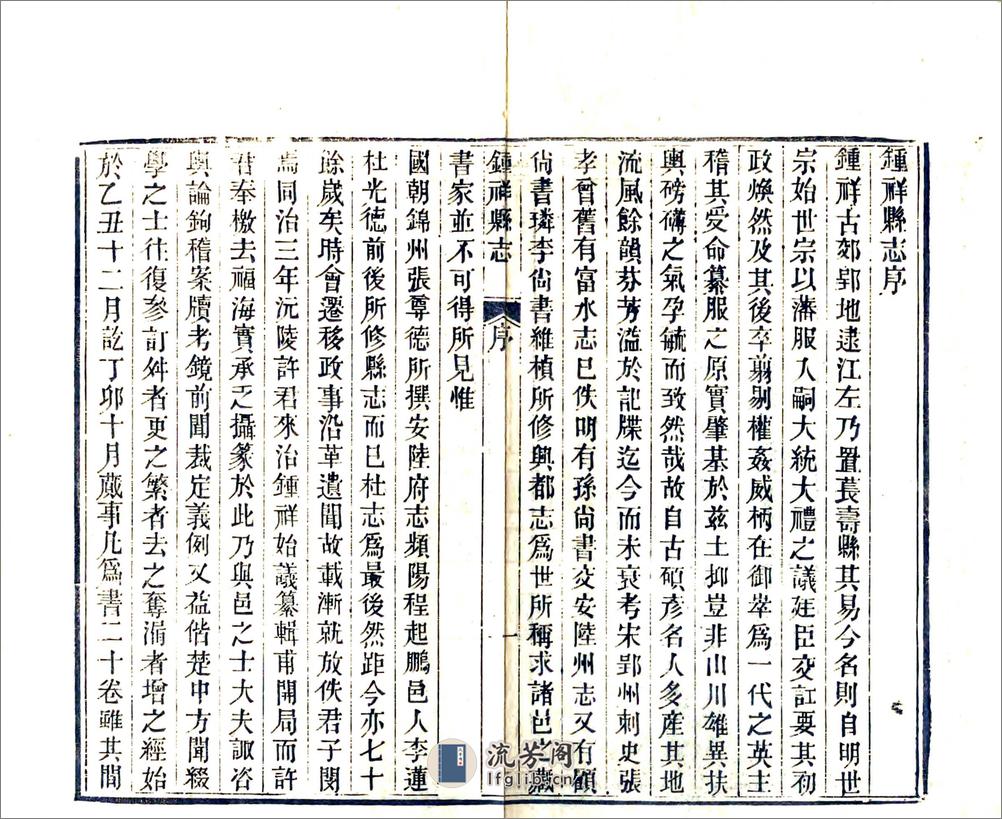 鍾祥縣志序
鍾祥古郊郢地逮江左乃置萇壽縣其易今名則自明世
宗始世宗以藩服入嗣大統大禮之議廷臣交訌要其初
政煥然及其後卒剪剔權姦威柄在御崒爲一代之英主
稽其受命纂服之原實肇基於茲土抑豈非山川雄異扶
輿磅礴之氣孕毓而致然哉故自古碩彥名人多產其地
流風餘韻芬芳溢於記牒迄今而未衰考宋郢州刺史張
孝曾舊有富水志已佚明有孫尙書交安陸州志又有顧
尙書璘李尙書維楨所修興都志爲世所稱求諸邑之藏
鍾祥縣志
序
一
書家並不可得所見惟
國朝錦州張尊德所撰安陸府志頻陽程起鵬邑人李蓮
杜光德前後所修縣志而已杜志爲最後然距今亦七十
餘歲矣時會遷移政事沿革遺聞故載漸就放佚君子閔
焉同治三年沅陵許君來治鍾祥始議纂輯甫開局而許
君奉檄去福海實承乏攝篆於此乃與邑之士大夫諏咨
輿論鉤稽案牘考鏡前聞裁定義例又益偕楚中方聞綴
學之士往復參訂舛者更之繁者去之奪漏者增之經始
於乙丑十二月訖丁卯十月蕆事凡爲書二十卷雖其間
流芳阁
lfglib.cn